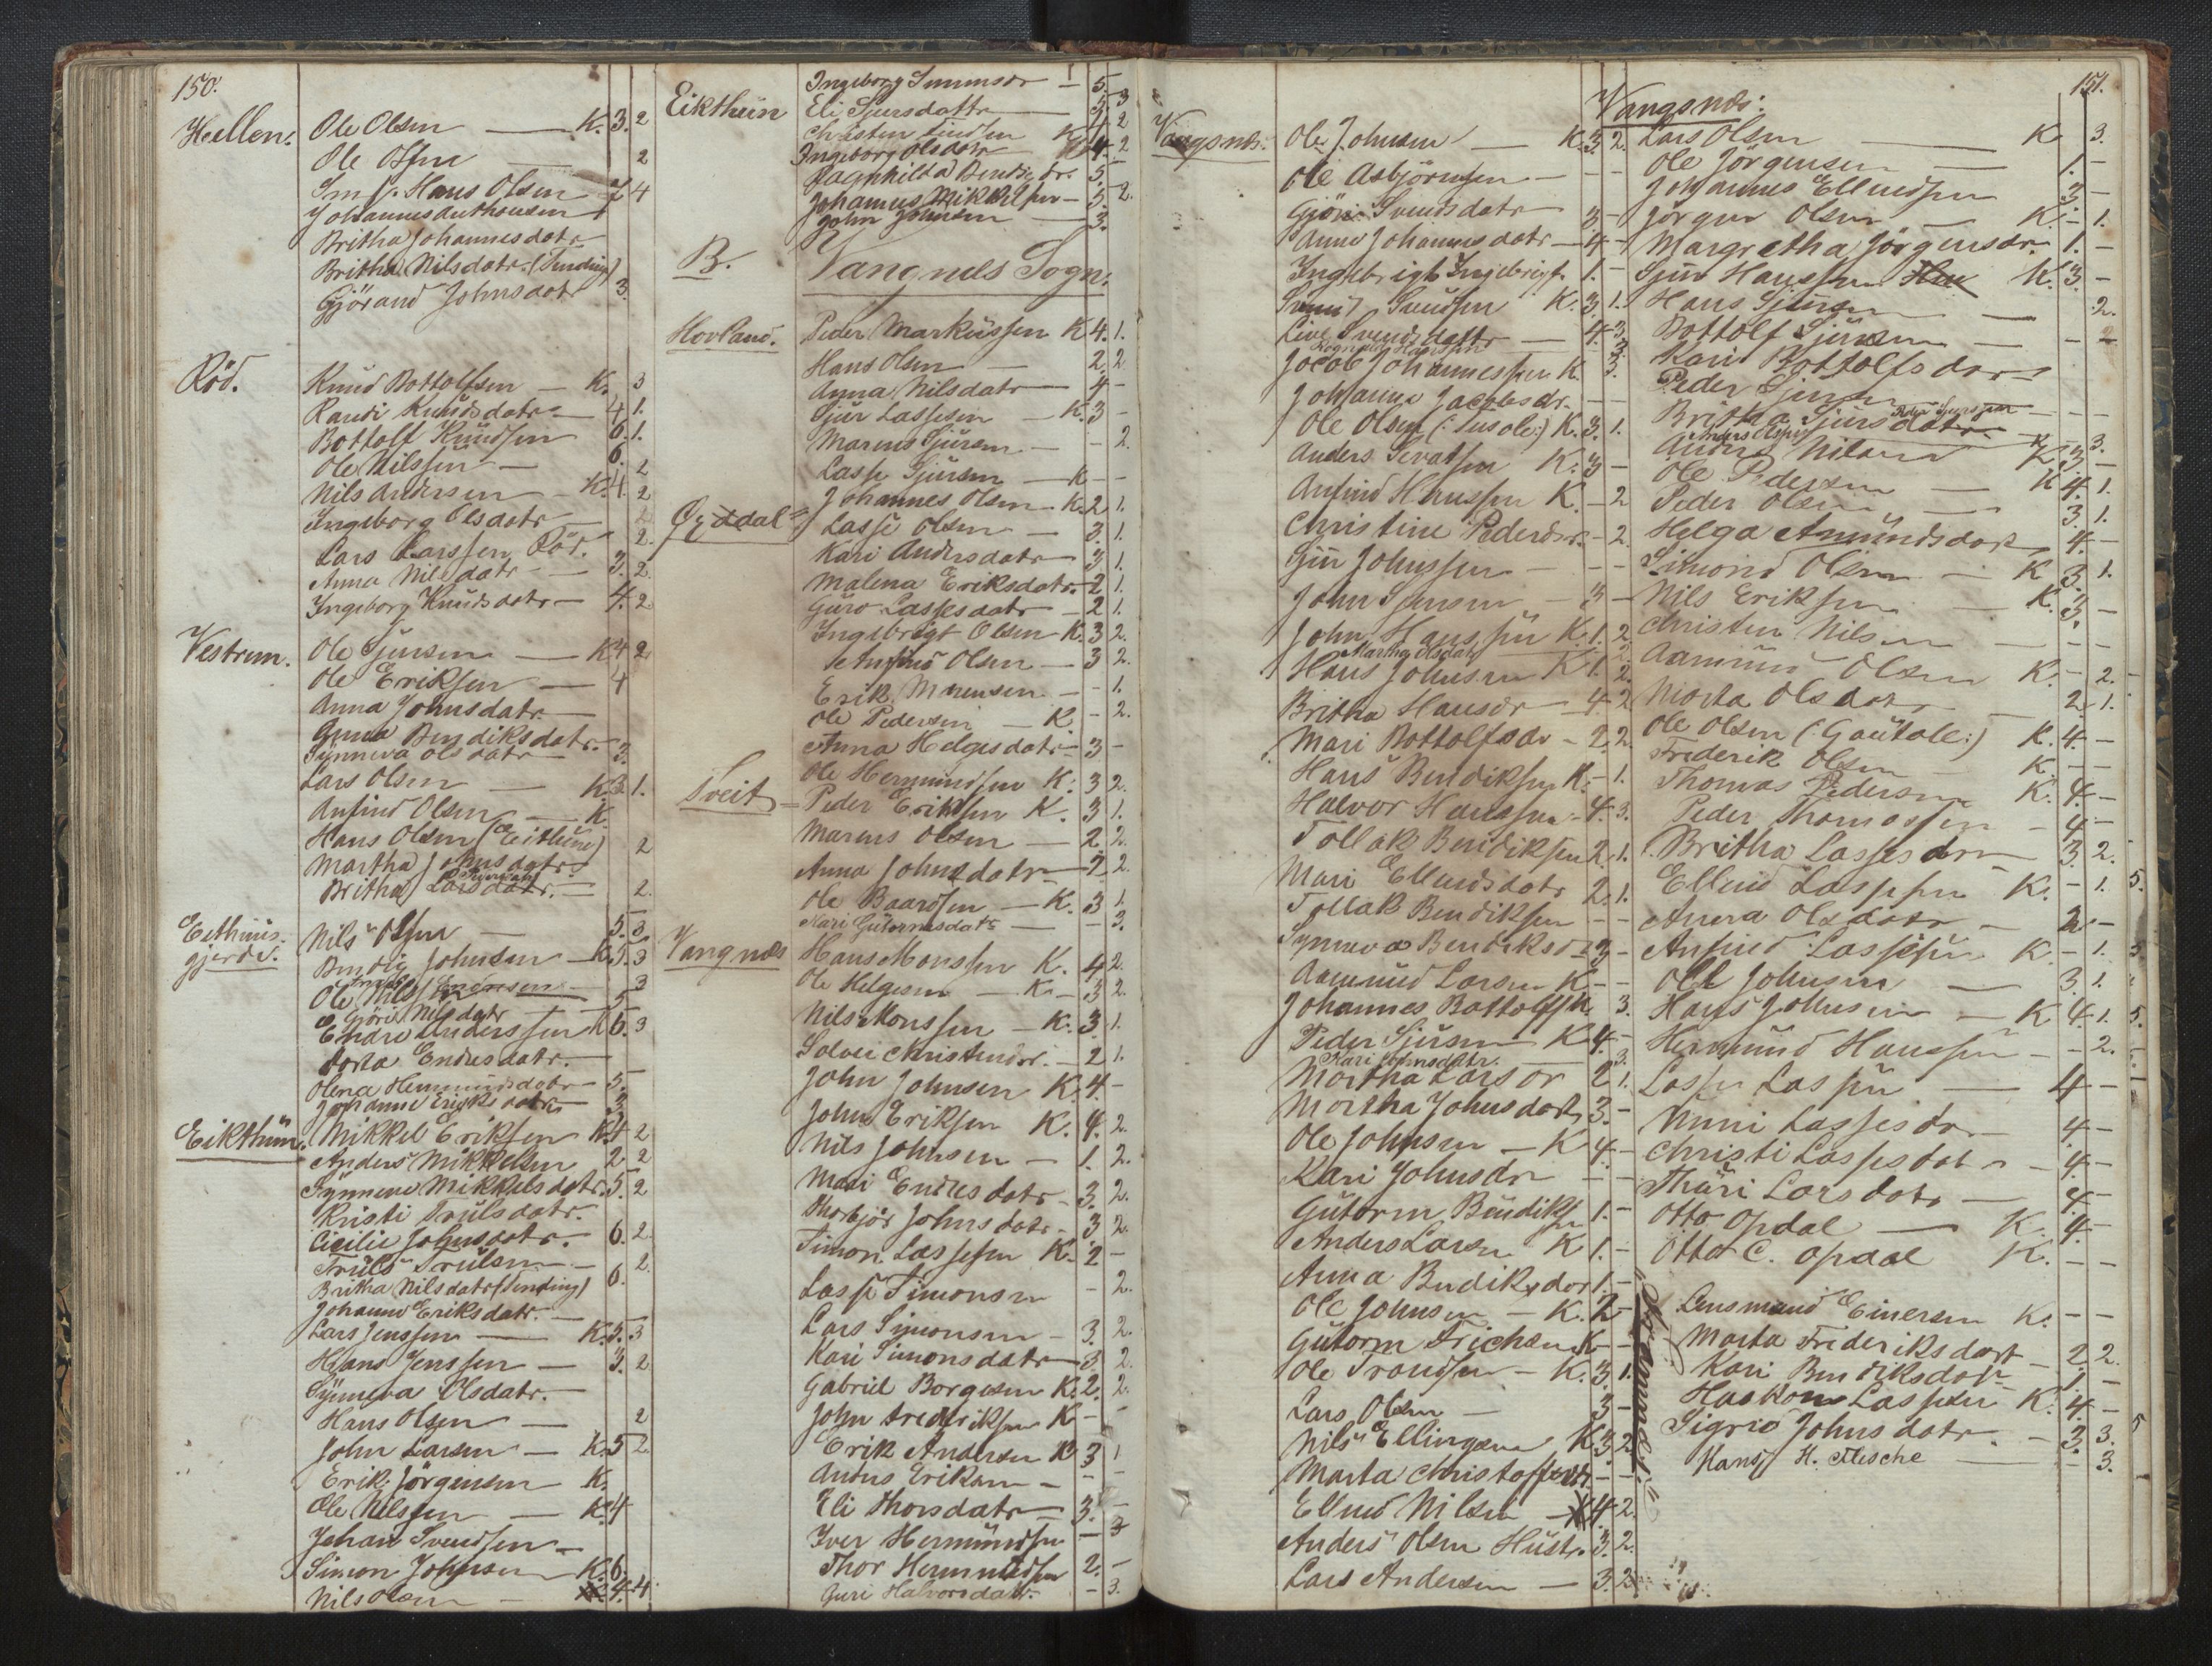 150.
Hellen. Ole Olsen — K. 3. 2
Ole Olsen — 2
Hans Olsen 7 4
Johannes
Britha Johannesdatr
Britha Nilsdatr. (Tending)
Gjörand Johnsdatr 3.
Röd. Knud Bottolfsen — K. 3
Randi Knudsdatr — 4 1.
Bottolf Knudsen 6. 1.
Ole Nilssen — 6.
Nils Andersen — K. 4. 2
Ingeborg Olsdatr 2
Lars Larssen Röd. 2.
Anna Nilsdatr — 3. 2
Ingeborg Knudsdatr — 4. 2
Vestrem. Ole Sjursen — K 4 2
Ole Eriksen — 4
Anna Johnsdatr. —
Anna Bendiksdatr.
Synneva Olsdatr 3.
Lars Olsen — K. 3 1.
Anfind Olsen — K
Hans Olsen (Eithun) 2
Martha Johnsdatr.
Britha Larsdatr. — 2.
Eithuns gjerde. Nils Olsen — 5. 3
Bendig Johnsen K. 5. 3
Ole Nilssen 3
Gjöri Nilsdatr 5
Endre Anderssen K 6. 3
Dorta Endresdatr. —
Olena Hermundsdatr — 5.
Johanne Eriksdatr 3
Eikthun. Mikkel Eriksen K. 4 2
Anders Mikkelsen 2. 2
Synneve Mikkelsdatr. 5. 2
Kristi Trulsdatr.
Cicilie Johnsdatr. 6. 2.
Truls Trulsen — 2.
Britha Nilsdatr (Tending) 6.
Johanne Eriksdatr. —
Lars Jenssen — K. 5. 3
Hans Jenssen — 3. 2
Synneva Olsdatr. —
Hans Olsen — 2
John Larsen — K. 5 2
Erik Jörgensen K.
Ole Nilssen — K. 4
Johan Svendsen —
Simon Johnsen K. 6.
Nils Olsen — K. 4. 4.
Ingeborg Simonsdr — 5.
Eikthun Eli Sjursdatr 5. 3
Christen K 4 2
Ingeborg Olsdatr 4. 2
Ragnhilda Bendigdr. 5.
Johannes Mikkelsen — 5 2.
John Johnsen — 3.
B. Vangnæs Sogn.
Hovland. Peder Markussen K 4. 1.
Hans Olsen — 2. 2
Anna Nilsdatr — 4 -
Sjur Lassesen — K. 3 -
Marius Sjursen — - 2.
Lasse Sjursen — K - -
Johannes Olsen — K. 2 1.
Ov dal Lasse Olsen — 3. 1.
Kari Andersdatr — 3 1.
Malena Eriksdatr. 2 1.
Guro Lassesdatr — 2 1.
Ingebrigt Olsen K. 3 2.
Anfind Olsen — 3 2.
Erik Monsen — - 1.
Ole Pedersen — K. - 2.
Anna Helgesdatr — 3 -
Tveit Ole Hermundsen K. 3 2.
Peder Eriksen K. 3 1.
Marius Olsen — 2 2.
Anna Johnsdatr — 2 2.
Ole Baardsen — K. 3 1.
Kari Gutormsdatr — - 3.
Vangnæs Hans Monssen K. 4 2.
Ole Helgesen — K. — 3 2.
Nils Monssen — K. 3 1.
Solvei Christensdr. — 2 1.
John Johnsen K. 4. -
John Eriksen K. 4. 2.
Nils Johnsen — 1. 2.
Mari Endresdatr — 3 2.
Thorbjör Johnsdatr — 3 2.
Simon Lassesen K. 2 -
Lasse Simonsen - 2.
Lars Simonsen — 3. 2.
Kari Simonsdatr — 3 2.
Gabriel Borgesen K. 2. 2.
John Frederiksen K - -
Erik Andersen K 3 1
Anders Eriksen — - -
Eli Thorsdatr — 3. -
Iver Hermundsen — 3
Thor Hermundsen 2. -
Guri Halvorsdatr. - 3.
151.
Vangsnæs.
Vangsnæs. Ole Johnsen — K. 3. 2.
Ole Asbjörnsen — - -
Gjöri Svendsdatr 3 -
Anna Johannesdatr — 4 -
Ingebrigt Ingebrigts. 1. -
Svend Svendsen K. 3 1.
Live Svendsdatr — 4. 3.
Jocob Johannessen K. 3.
Johanna Jacobsdr. - -
Ole Olsen K. 3. 1.
Anders Sevatsen K. 3 -
Anfind Hanssen K. - 2
Christine Pedersdr. - 2.
Johnssen — - -
John Sjursen — 3 -
John Hanssen K. 1. 2
Martha Olsdatr 2.
Hans Johnsen K 1. 2.
Britha Hansdr — 4 2
Mari Bottolfsdr — 2 2.
Hans Bendiksen K. - 1.
Halvor Hanssen — 4. 3.
Tollak Bendiksen 2. 1.
Mari Ellendsdatr 2. 1.
Tollak Bendiksen - -
Synneva Bendiksd. 3 -
Aamund Larsen K - -
Johannes Bottolfsen 3.
Peder Sjursen K 4. -
Kari Johnsdatr. 3.
Martha Larsdr 2 1.
Martha Johnsdatr 3 -
Ole Johnsen — K 4. -
Kari Johnsdr - -
Gutorm Bendiksen 1. -
Anders Larsen K 1. -
Anna Bendiksdor 1. -
Ole Johnsen — K. 2 -
Gutorm Trichsen K - -
Ole Trondsen — K. 3. 1.
Lars Olsen — 3 -
Nils Ellingsen K 3 2.
Marta Christoffersdr. - -
Ellend Nilsen — K 4. 2.
Anders Olsen Hustr. 3. 2.
Lars Andersen — 3. 2
Lars Olsen — K 3.
Ole Jörgensen — 1. -
Johannes Ellendsen 3 -
Jörgen Olsen — K. - 1.
Margretha Jörgensdr. 1. -
Sjur Hanssen K. 3. -
Hans Sjursen — 2.
Bottolf Sjursen — - 2
Kari Bottolfsdor
Peder Sjursen
Peder Sjurssen - -
Britha Sjursdatr
Anders Olsen K 3.
Anders Nilsen K 3 -
Ole Pedersen — K 4. 1.
Peder Olsen — 3. 1.
Helga Amundsdatr 4. -
Simond Olsen — K 3. 1.
Nils Eriksen — K. 3. -
Christen Nilsen — - -
Aamund Olsen K. - 2.
Marta Olsdatr — 2. 1.
Ole Olsen (: Gautole :) K. 4. -
Frederik Olsen K. - -
Thomas Pedersen K. 4. -
Peder Thomassen — 4. -
Britha Lassesdr — 3. 2.
Ellend Lassesen K. - 1. 5.
Anna Olsdatr — 2. -
Anfind Lassesen K. - 1. 5
Ole Johnsen — 3 1.
Hans Johnsen — K 4. 1. 5.
Hermund Hanssen — - 2.
Lasse Lassesen — 4 -
Anni Lassesdr. — 4. -
Christi Lassesdatr — 4. -
Thuri Larsdatr — 4. -
Otto Opdal — K. 4. -
Otto C. Opdal K. - -
Lensmand Einersen K. - -
Marta Frideriksdatr — 2 2.
Kari Bendiksdatr 1. -
Haakon Lassesen K. 4. -
Sigrid Johnsdatr. — 3. 3. 5
Hans H. Flesche — - 3.